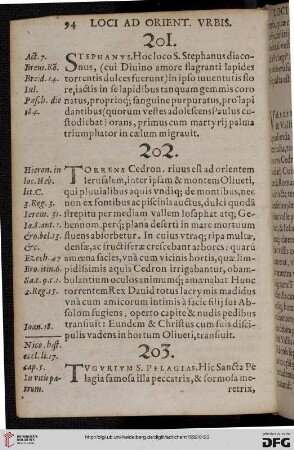 94 LOCI AD ORIENT. VRBIS.
201.
Act. 7.
STEPHANVS. Hoc loco S. Stephanus diaco-
nus, (cui Diuino amore flagranti lapides
torrentis dulces fuerunt) in ipso iuuentutis flo
Iul.
re, iactis in se lapidibus tanquam gemmis coro
natus, proprioq; sanguine purpuratus, pro lapi
184.
dantibus (quorum vestes adolescens Paulus cu-
stodiebat) orans, primus cum martyrij palma
triumphator in cælum migrauit.
202.
Hieron. in
loc. Heb.
lit. C.
3. Reg. 5.
Ierem. 31.
&c.
TORRENS Cedron. riuus est ad orientem
Ierusalem, inter ipsam & montem Oliueti,
qui pluuialibus aquis vndiq; de montibus, nec
non ex fontibus ac piscinis auctus, dulci quodã
strepitu per mediam vallem Iosaphat atq; Ge-
hennom, perq; plana deserti in mare mortuum
fluens absorbetur. In cuius vtraq; ripa multæ,
densæ, ac fructiferæ crescebant arbores: quarũ
Ezech. 47
amœna facies, vnà cum vicinis hortis, quæ lim-
pidissimis aquis Cedron irrigabantur, obam-
bulantium oculos animumq; amœnabat Hunc
2. Reg. 15.
torrentem Rex Dauid totus lacrymis madidus
vnà cum amicorum intimis à facie filij sui Ab-
solom fugiens, operto capite & nudis pedibus
Ioan. 18.
transiuit: Eundem & Christus cum suis disci-
pulis vadens in hortum Oliueti, transiuit.
Nice. hist.
eccl. li. 17.
cap. 5.
In vitis pa-
trum.
203.
TVGVRIVM S. PELAGIAE. Hic Sancta Pe
lagia famosa illa peccatrix, & formosa me-
retrix,
UNIVERSITÄTS-
BIBLIOTHEK
HEIDELBERG
DFG